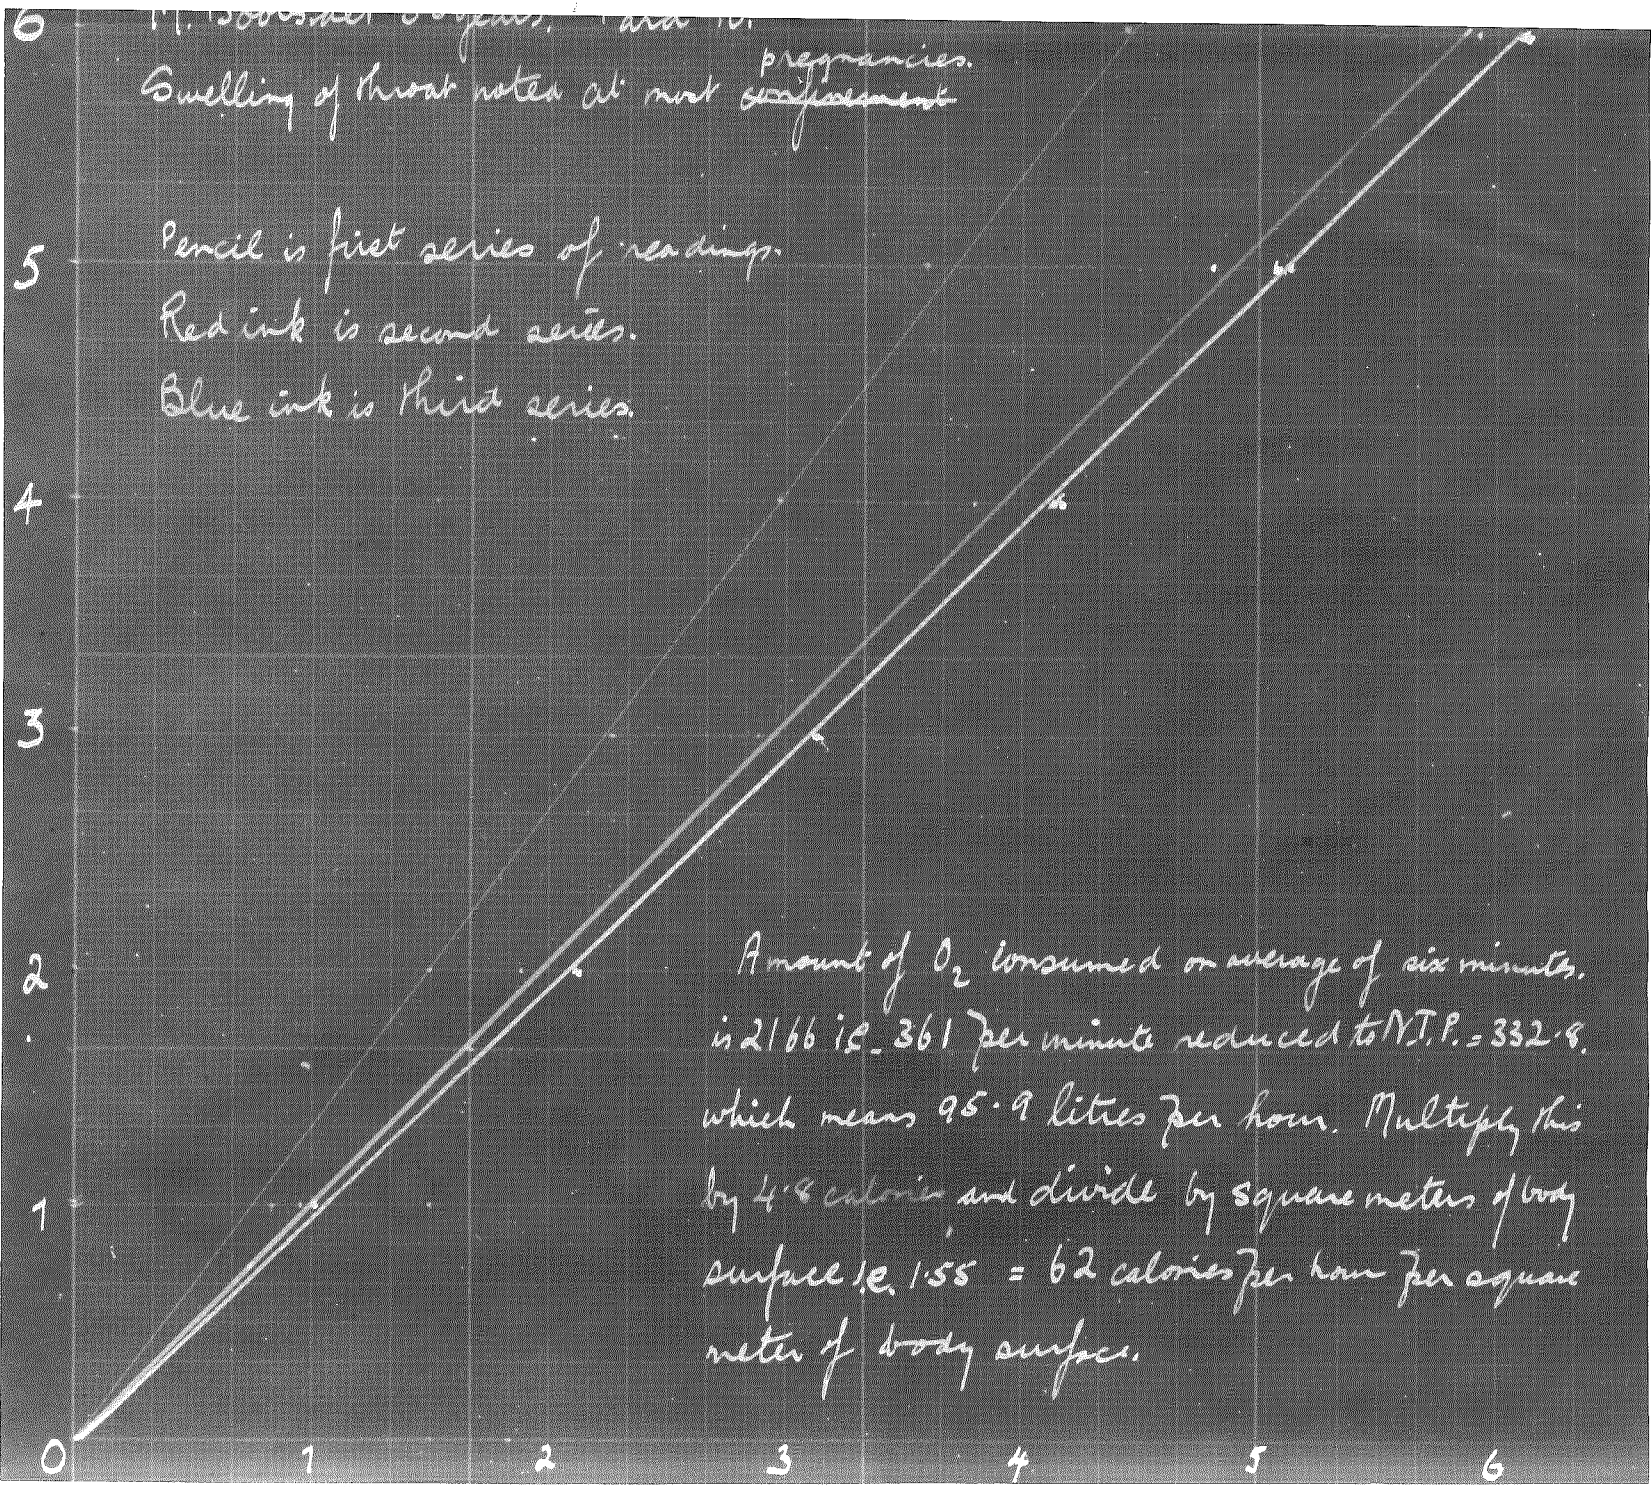 6
pregnancies.
Swelling of throat noted at most confinement
Pencil is first series of readings.
5
Red ink is second series.
Blue ink is third series.
4
3
2
Amount of O2 consumed on average of six minutes.
is 2166 i.e. 361 per minute reduced to N.T.P. = 332·8.
which means 95·9 litres per hour. Multiply this
1
by 4·8 calories and divide by square meters of body
surface i.e. 1·55 = 62 calories per hour per square
meter of body surface.
0 1 2 3 4 5 6